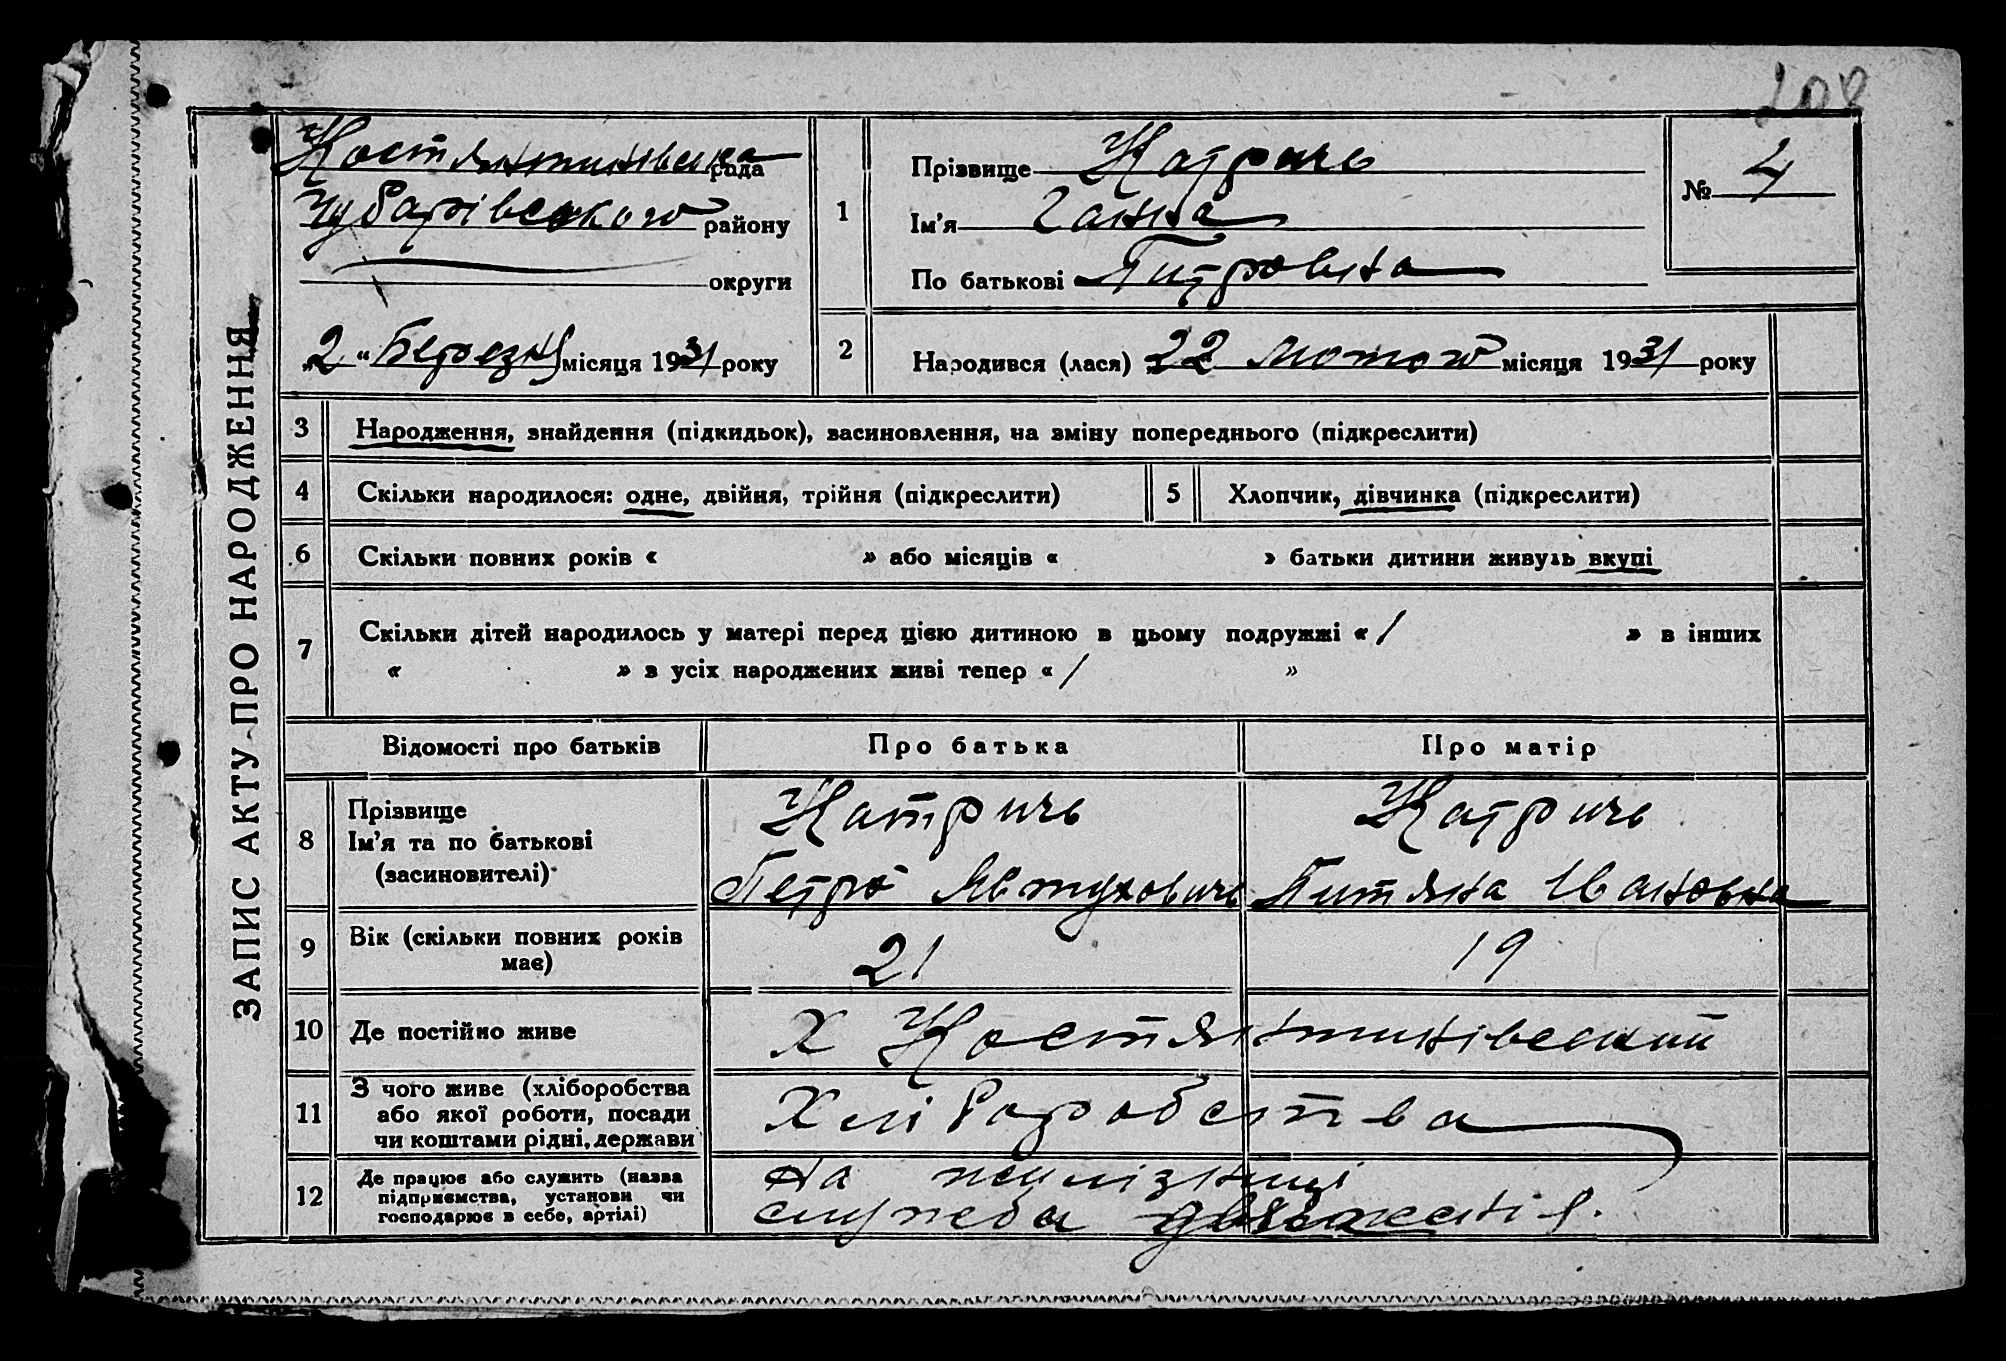 208
ЗАПИС АКТУ ПРО НАРОДЖЕННЯ
Костянтинівська рада
Чубарівського району
округи
„2“ Березня місяця 1931 року
1
Прізвище Катричь
Ім'я Ганна
По батькові Питровна
№ 4
2
Народився (лася) 22 Лютого місяця 1931 року
3 Народження, знайдення (підкидьок), засиновлення, на зміну попереднього (підкреслити)
4 Скільки народилося: одне, двійня, трійня (підкреслити)
5 Хлопчик, дівчинка (підкреслити)
6 Скільки повних років « » або місяців « » батьки дитини живуть вкупі
7 Скільки дітей народилось у матері перед цією дитиною в цьому подружжі « 1 » в інших
« » в усіх народжених живі тепер « 1 »
Відомості про батьків Про батька Про матір
8 Прізвище
Ім'я та по батькові
(засиновителі)
Катричь
Петро Явтуховичь
Катричь
Титяна Івановна
9 Вік (скільки повних років
має)
21 19
10 Де постійно живе Х Костянтинівский
11 З чого живе (хліборобства
або якої роботи, посади
чи коштами рідні, держави
Хліборобства
12 Де працює або служить (назва
підприємства, установи чи
господарює в себе, артілі)
на
служба